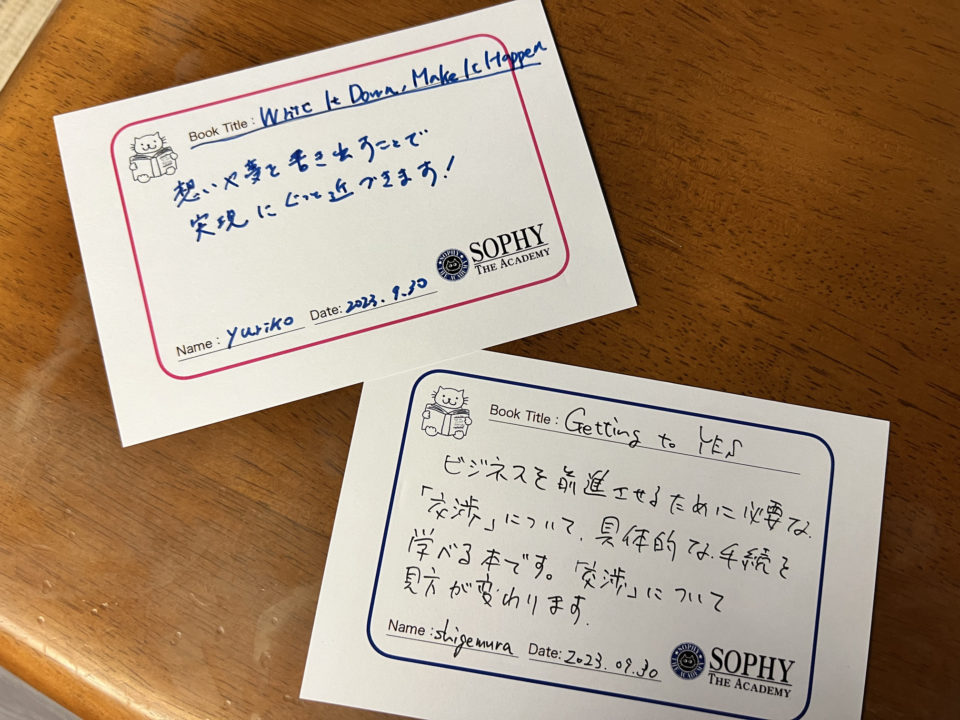 Book Title : Write It Down, Make It Happen
想いや夢を書き出すことで
実現にぐっと近づきます!
SOPHY
THE ACADEMY
Name : Yuriko Date: 2023. 9. 30
Book Title : Getting to YES
ビジネスを前進させるために必要な
「交渉」について、具体的な手続を
学べる本です。「交渉」について
見方が変わります。
Name : shigemura Date: 2023. 09. 30
SOPHY
THE ACADEMY